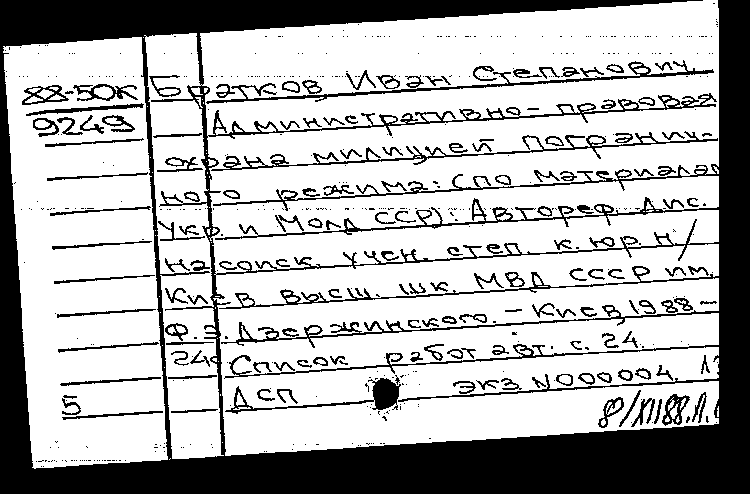 88-50К Братков, Иван Степанович.
9249 Административно-правовая
охрана милицией погранич-
ного режима: (по материалам
Укр. и Молд ССР): Автореф. дис.
на соиск. учен. степ. к. юр. н/
Киев. высш. шк. МВД СССР им.
Ф. Э. Дзержинского. - Киев, 1988 -
24с Список работ авт. с. 24.
5 ДСП экз. N000004.